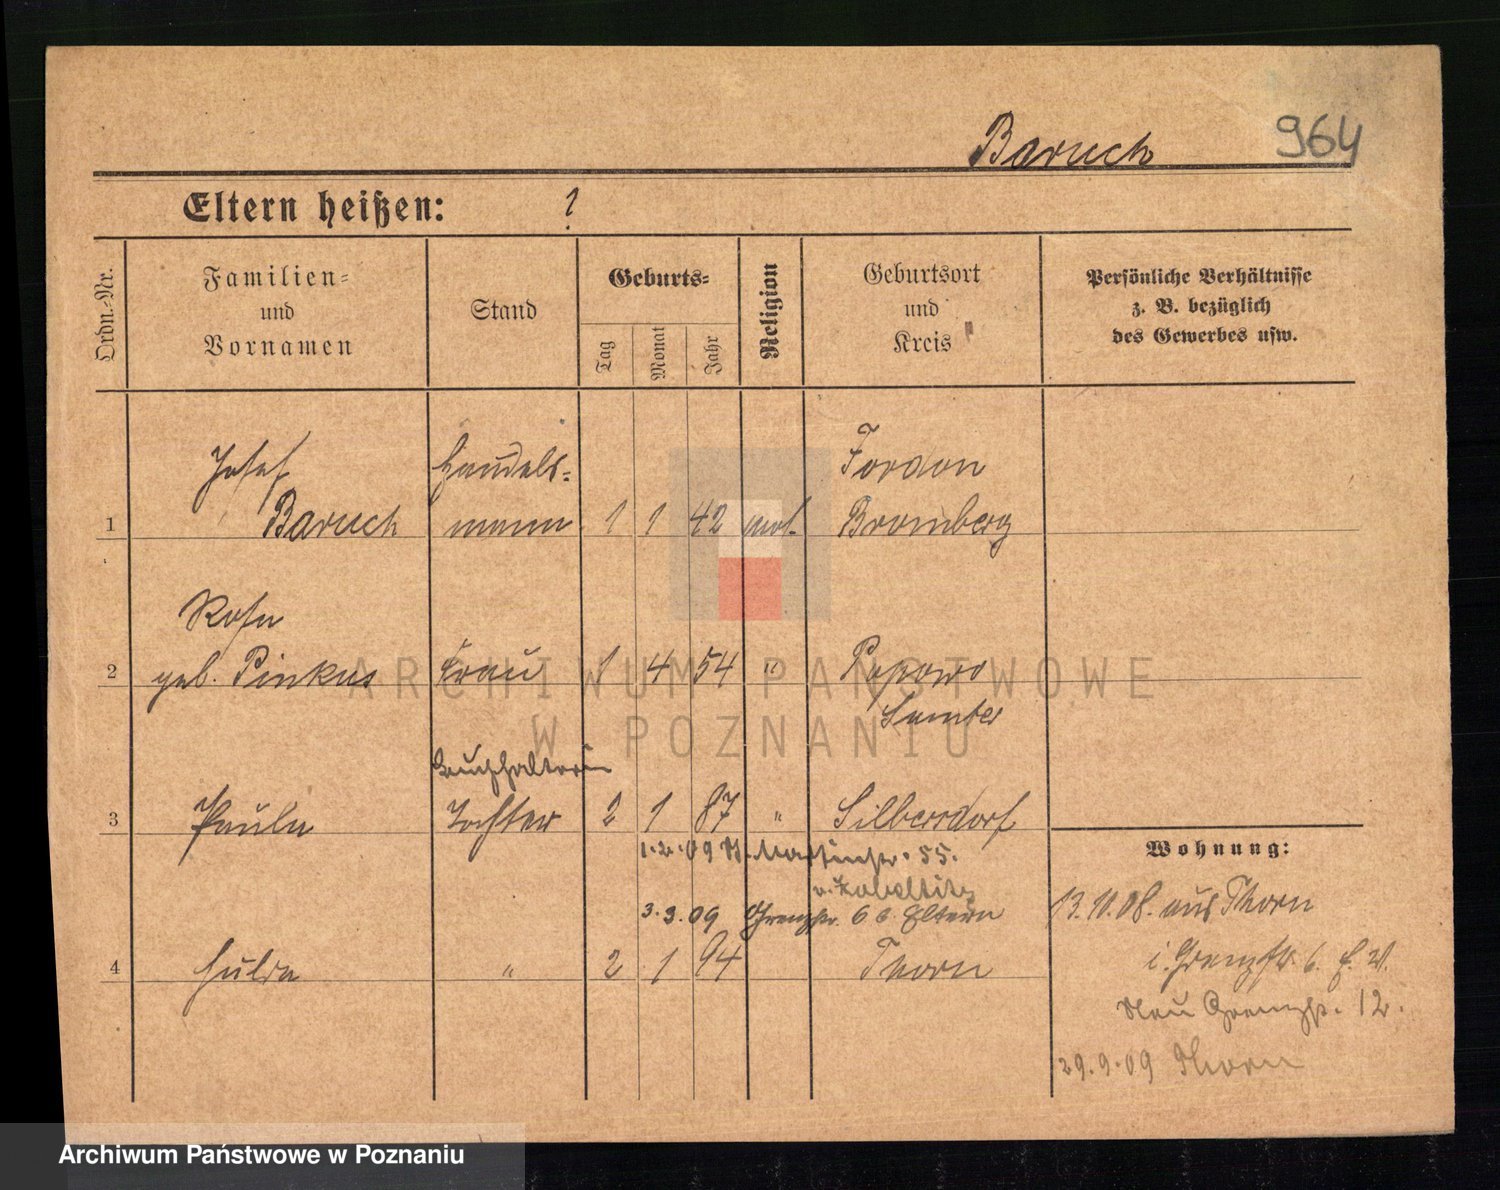 Baruch 964
Eltern heißen: ?
Ordn.-Nr.
Familien-
und
Vornamen
Stand
Geburts-
Tag
Monat
Jahr
Religion
Geburtsort
und
Kreis
Persönliche Verhältnisse
z. B. bezüglich
des Gewerbes usw.
Josef Handels- Fordon
1 Baruch mann 1 1 42 mos. Bromberg
Rosa
2 geb. Pinkus Frau 1 4 54 " Popowo
Samter
Buchhalterin
3 Paula Tochter 2 1 87 " Silbersdorf
1.2.09 55.
3.3.09 Grenzstr. 6 b. Eltern
4 Hulda " 2 1 94 Thorn
Wohnung:
13.10.08. aus Thorn
i. Grenzstr. 6.
Neu Grenzstr. 12.
29.9.09 Thorn
ARCHIWUM PAŃSTWOWE
W POZNANIU
Archiwum Państwowe w Poznaniu